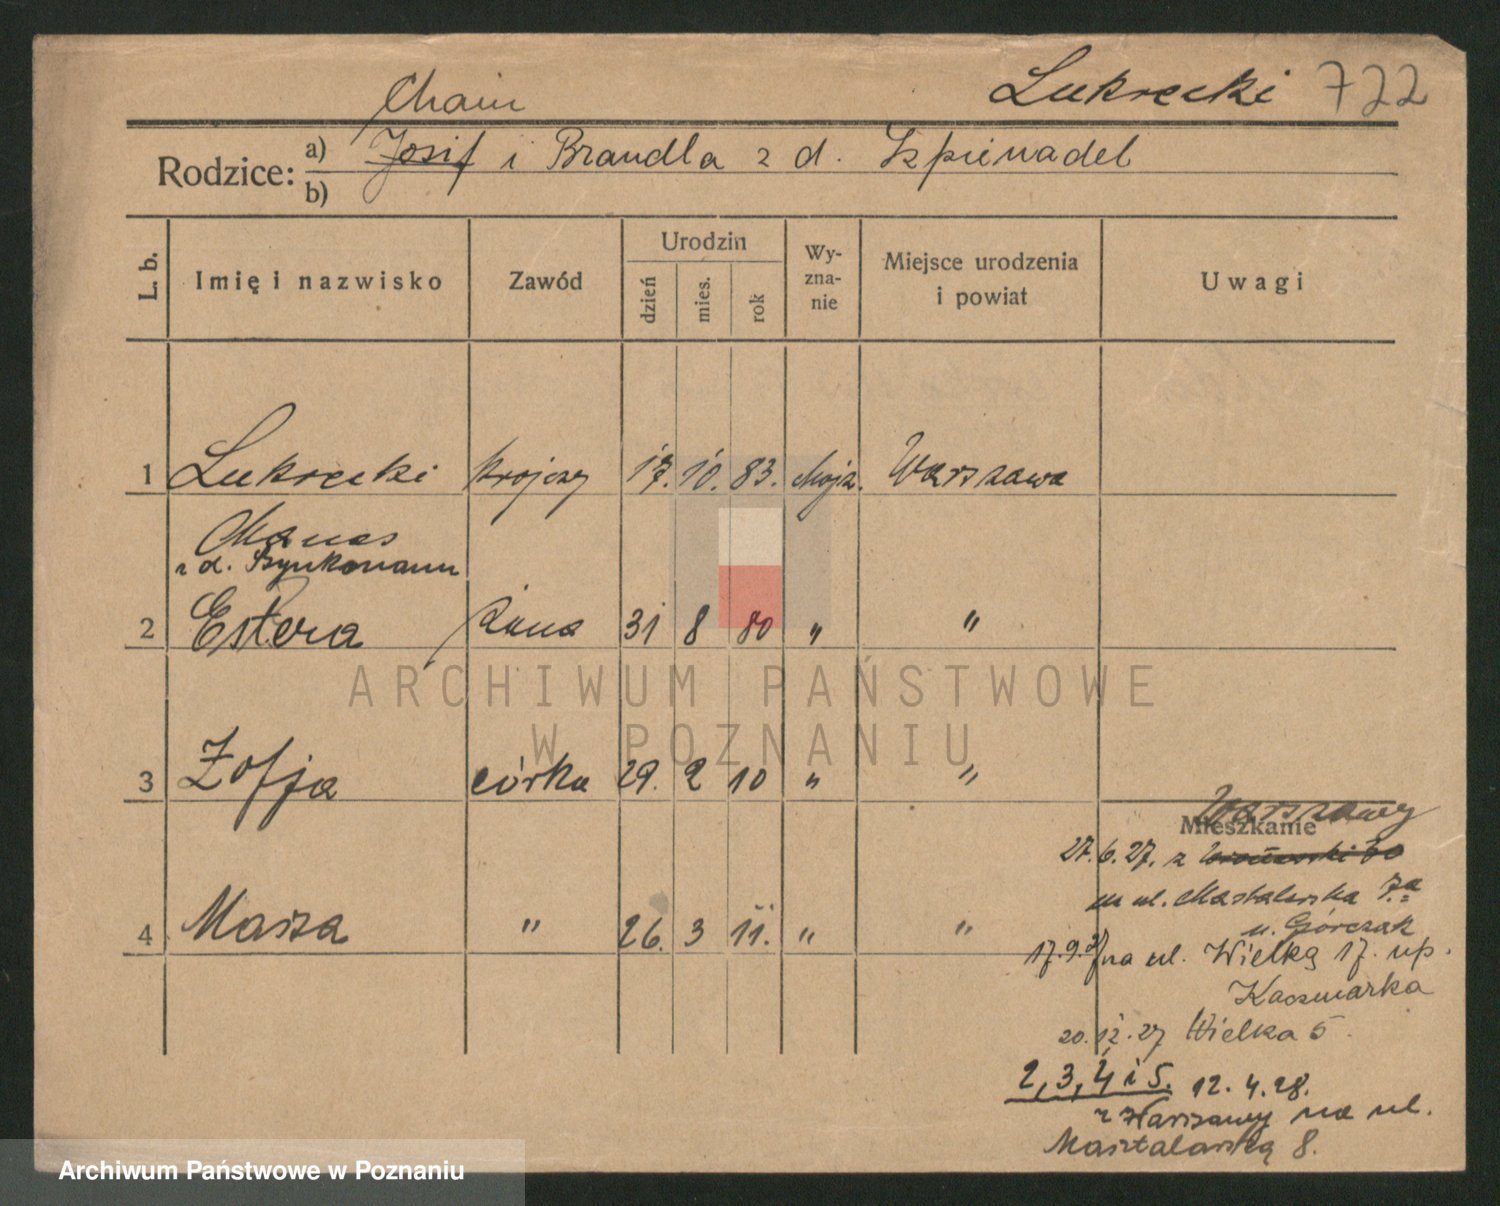 Chaim
Lukrecki 722
Rodzice: a) Josif i Brandla z d. Szpienadel
b)
L. b. Imię i nazwisko Zawód Urodzin dzień mies. rok Wy-zna-nie Miejsce urodzenia i powiat Uwagi
1 Lukrecki krojczy 17. 10. 83. Mojż. Warszawa
Manas
z d. Bynkomann
2 Estera żona 31 8 80 " "
3 Zofja córka 29. 2 10 " "
4 Masza " 26. 3 11. " "
Mieszkanie
Warszawy
27.6.27. z
na ul. Masztalarska 7.a
u. Górczak
17.9.27 na ul. Wielką 17. up.
Kaczmarka
20.12.27 Wielka 5.
2, 3, 4 i 5. 12.4.28.
z Warszawy na ul.
Masztalarską 8.
ARCHIWUM PAŃSTWOWE
W POZNANIU
Archiwum Państwowe w Poznaniu